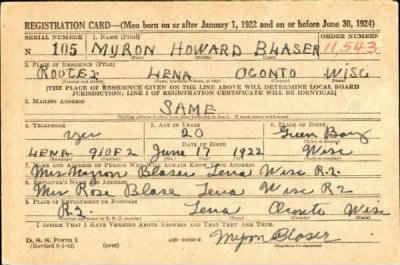 REGISTRATION CARD—(Men born on or after January 1, 1922 and on or before June 30, 1924)
SERIAL NUMBER 1. NAME (Print) ORDER NUMBER
N 105 MYRON HOWARD BLASER 11,543
2. PLACE OF RESIDENCE (Print)
ROUTE 2 LENA OCONTO WISC
[THE PLACE OF RESIDENCE GIVEN ON THE LINE ABOVE WILL DETERMINE LOCAL BOARD
JURISDICTION; LINE 2 OF REGISTRATION CERTIFICATE WILL BE IDENTICAL]
3. MAILING ADDRESS
SAME
4. TELEPHONE 5. AGE IN YEARS 6. PLACE OF BIRTH
yes 20 Green Bay
DATE OF BIRTH
LENA 910F2 June 17 1922 Wisc
7. NAME AND ADDRESS OF PERSON WHO WILL ALWAYS KNOW YOUR ADDRESS
Mrs Myron Blaser Lena Wisc R.2.
8. EMPLOYER'S NAME AND ADDRESS
Mrs Rose Blase Lena Wisc R2
9. PLACE OF EMPLOYMENT OR BUSINESS
R.2. Lena Oconto Wisc
I AFFIRM THAT I HAVE VERIFIED ABOVE ANSWERS AND THAT THEY ARE TRUE.
D. S. S. Form 1
Myron Blaser